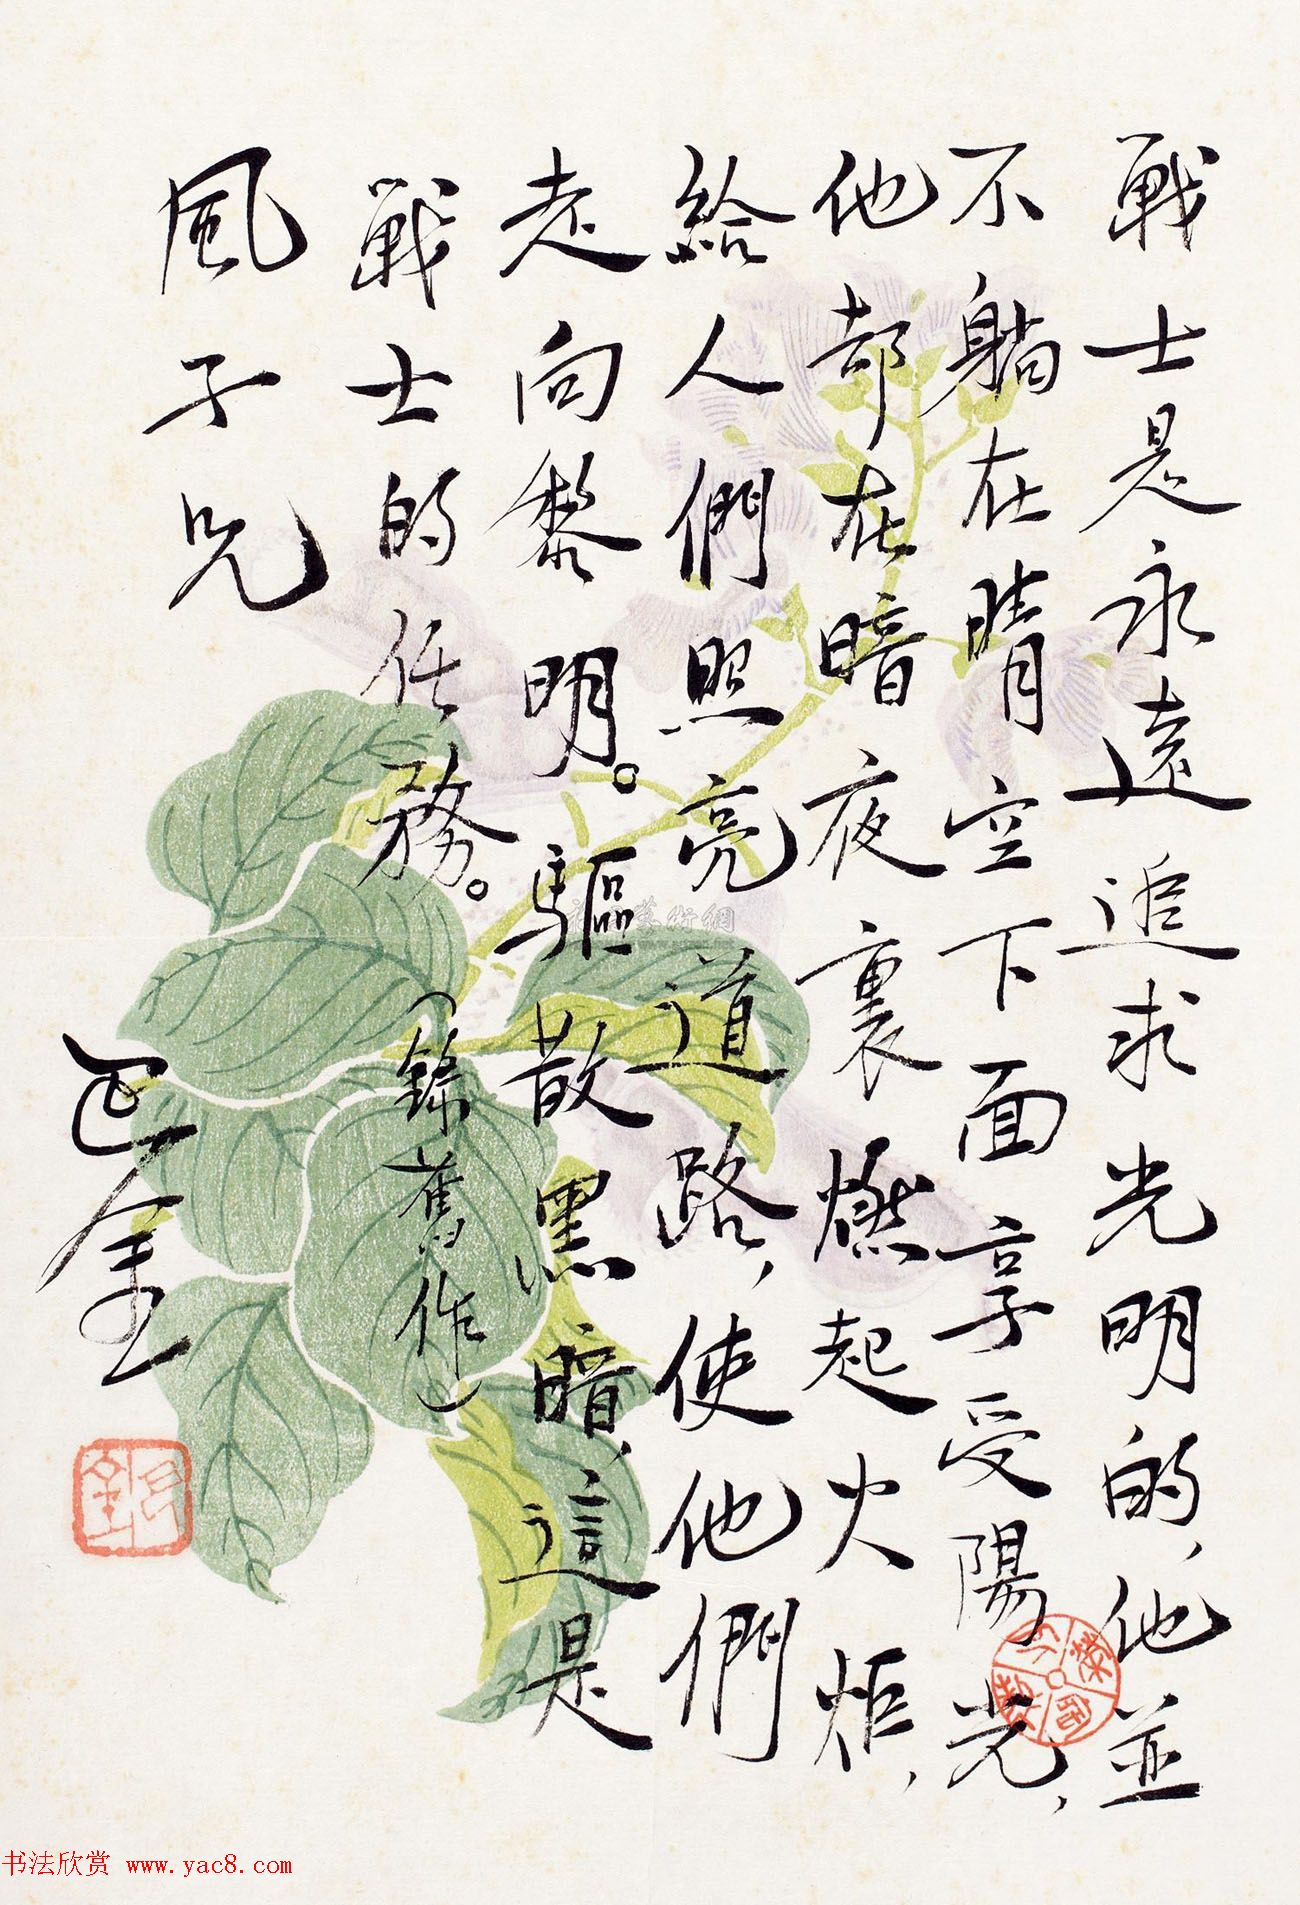 戰士是永遠追求光明的,他並
不躺在晴空下面享受陽光,
他却在暗夜裏燃起火炬,
給人們照亮道路,使他們
走向黎明。驅散黑暗,這是
戰士的任務。
(錄舊作)
風子兄
巴金
书法欣赏 www.yac8.com